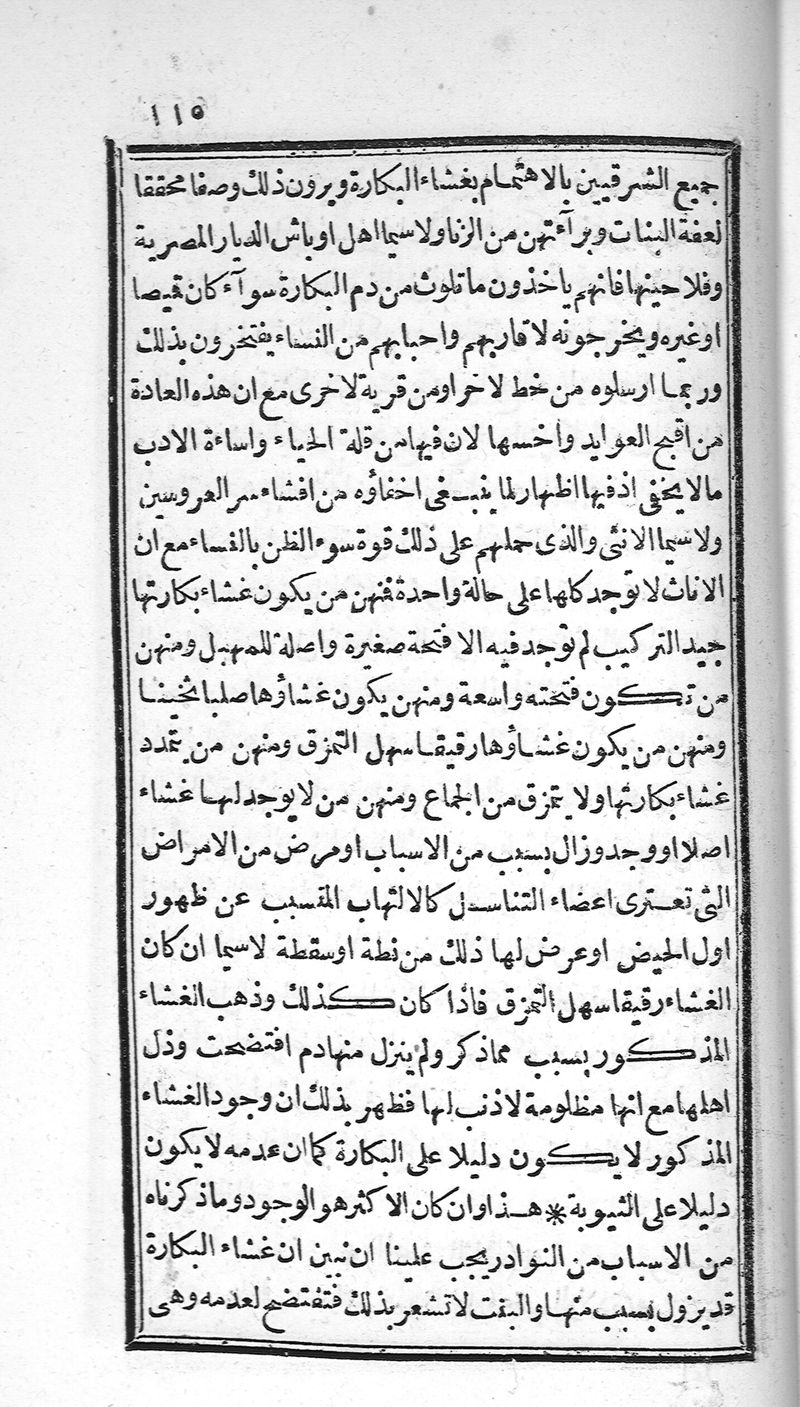 ١١٥
جميع الشرقيين بالاهتمام بغشاء البكارة ويرون ذلك وصفا محققا
لعفة البنات وبرآءتهن من الزنا ولا سيما اهل اوباش الديار المصرية
وفلاحينها فانهم ياخذون ما تلوث من دم البكارة سوآء كان قميصا
اوغيره ويخرجونه لاقاربهم واحبابهم من النساء يفتخرون بذلك
وربما ارسلوه من خط لاخر اومن قرية لاخرى مع ان هذه العادة
من اقبح العوايد واخسها لان فيها من قلة الحياء واساءة الادب
مالا يخفى اذ فيها اظهار لما ينبغى اخفاؤه من افشاء سر العروسين
ولا سيما الانثى والذى حملهم على ذلك قوة سوء الظن بالنساء مع ان
الاناث لا توجد كلها على حالة واحدة فمنهن من يكون غشاء بكارتها
جيد التركيب لم توجد فيه الا فتحة صغيرة واصلة للمهبل ومنهن
من تكون فتحته واسعة ومنهن يكون غشاؤها صلبا ثخينا
ومنهن من يكون غشاؤها رقيقا سهل التمزق ومنهن من يتمدد
غشاء بكارتها ولا يتمزق من الجماع ومنهن من لا يوجد لها غشاء
اصلا او وجد وزال بسبب من الاسباب او مرض من الامراض
التى تعترى اعضاء التناسل كالالتهاب المتسبب عن ظهور
اول الحيض اوعرض لها ذلك من نطة اوسقطة لا سيما ان كان
الغشاء رقيقا سهل التمزق فاذا كان كذلك وذهب الغشاء
المذكور بسبب مما ذكر ولم ينزل منها دم افتضحت وذل
اهلها مع انها مظلومة لاذنب لها فظهر بذلك ان وجود الغشاء
المذكور لا يكون دليلا على البكارة كما ان عدمه لا يكون
دليلا على الثيوبة * هذا وان كان الاكثر هو الوجود وما ذكرناه
من الاسباب من النوادر يجب علينا ان نبين ان غشاء البكارة
قد يزول بسبب منها والبنت لا تشعر بذلك فتفتضح لعدمه وهى